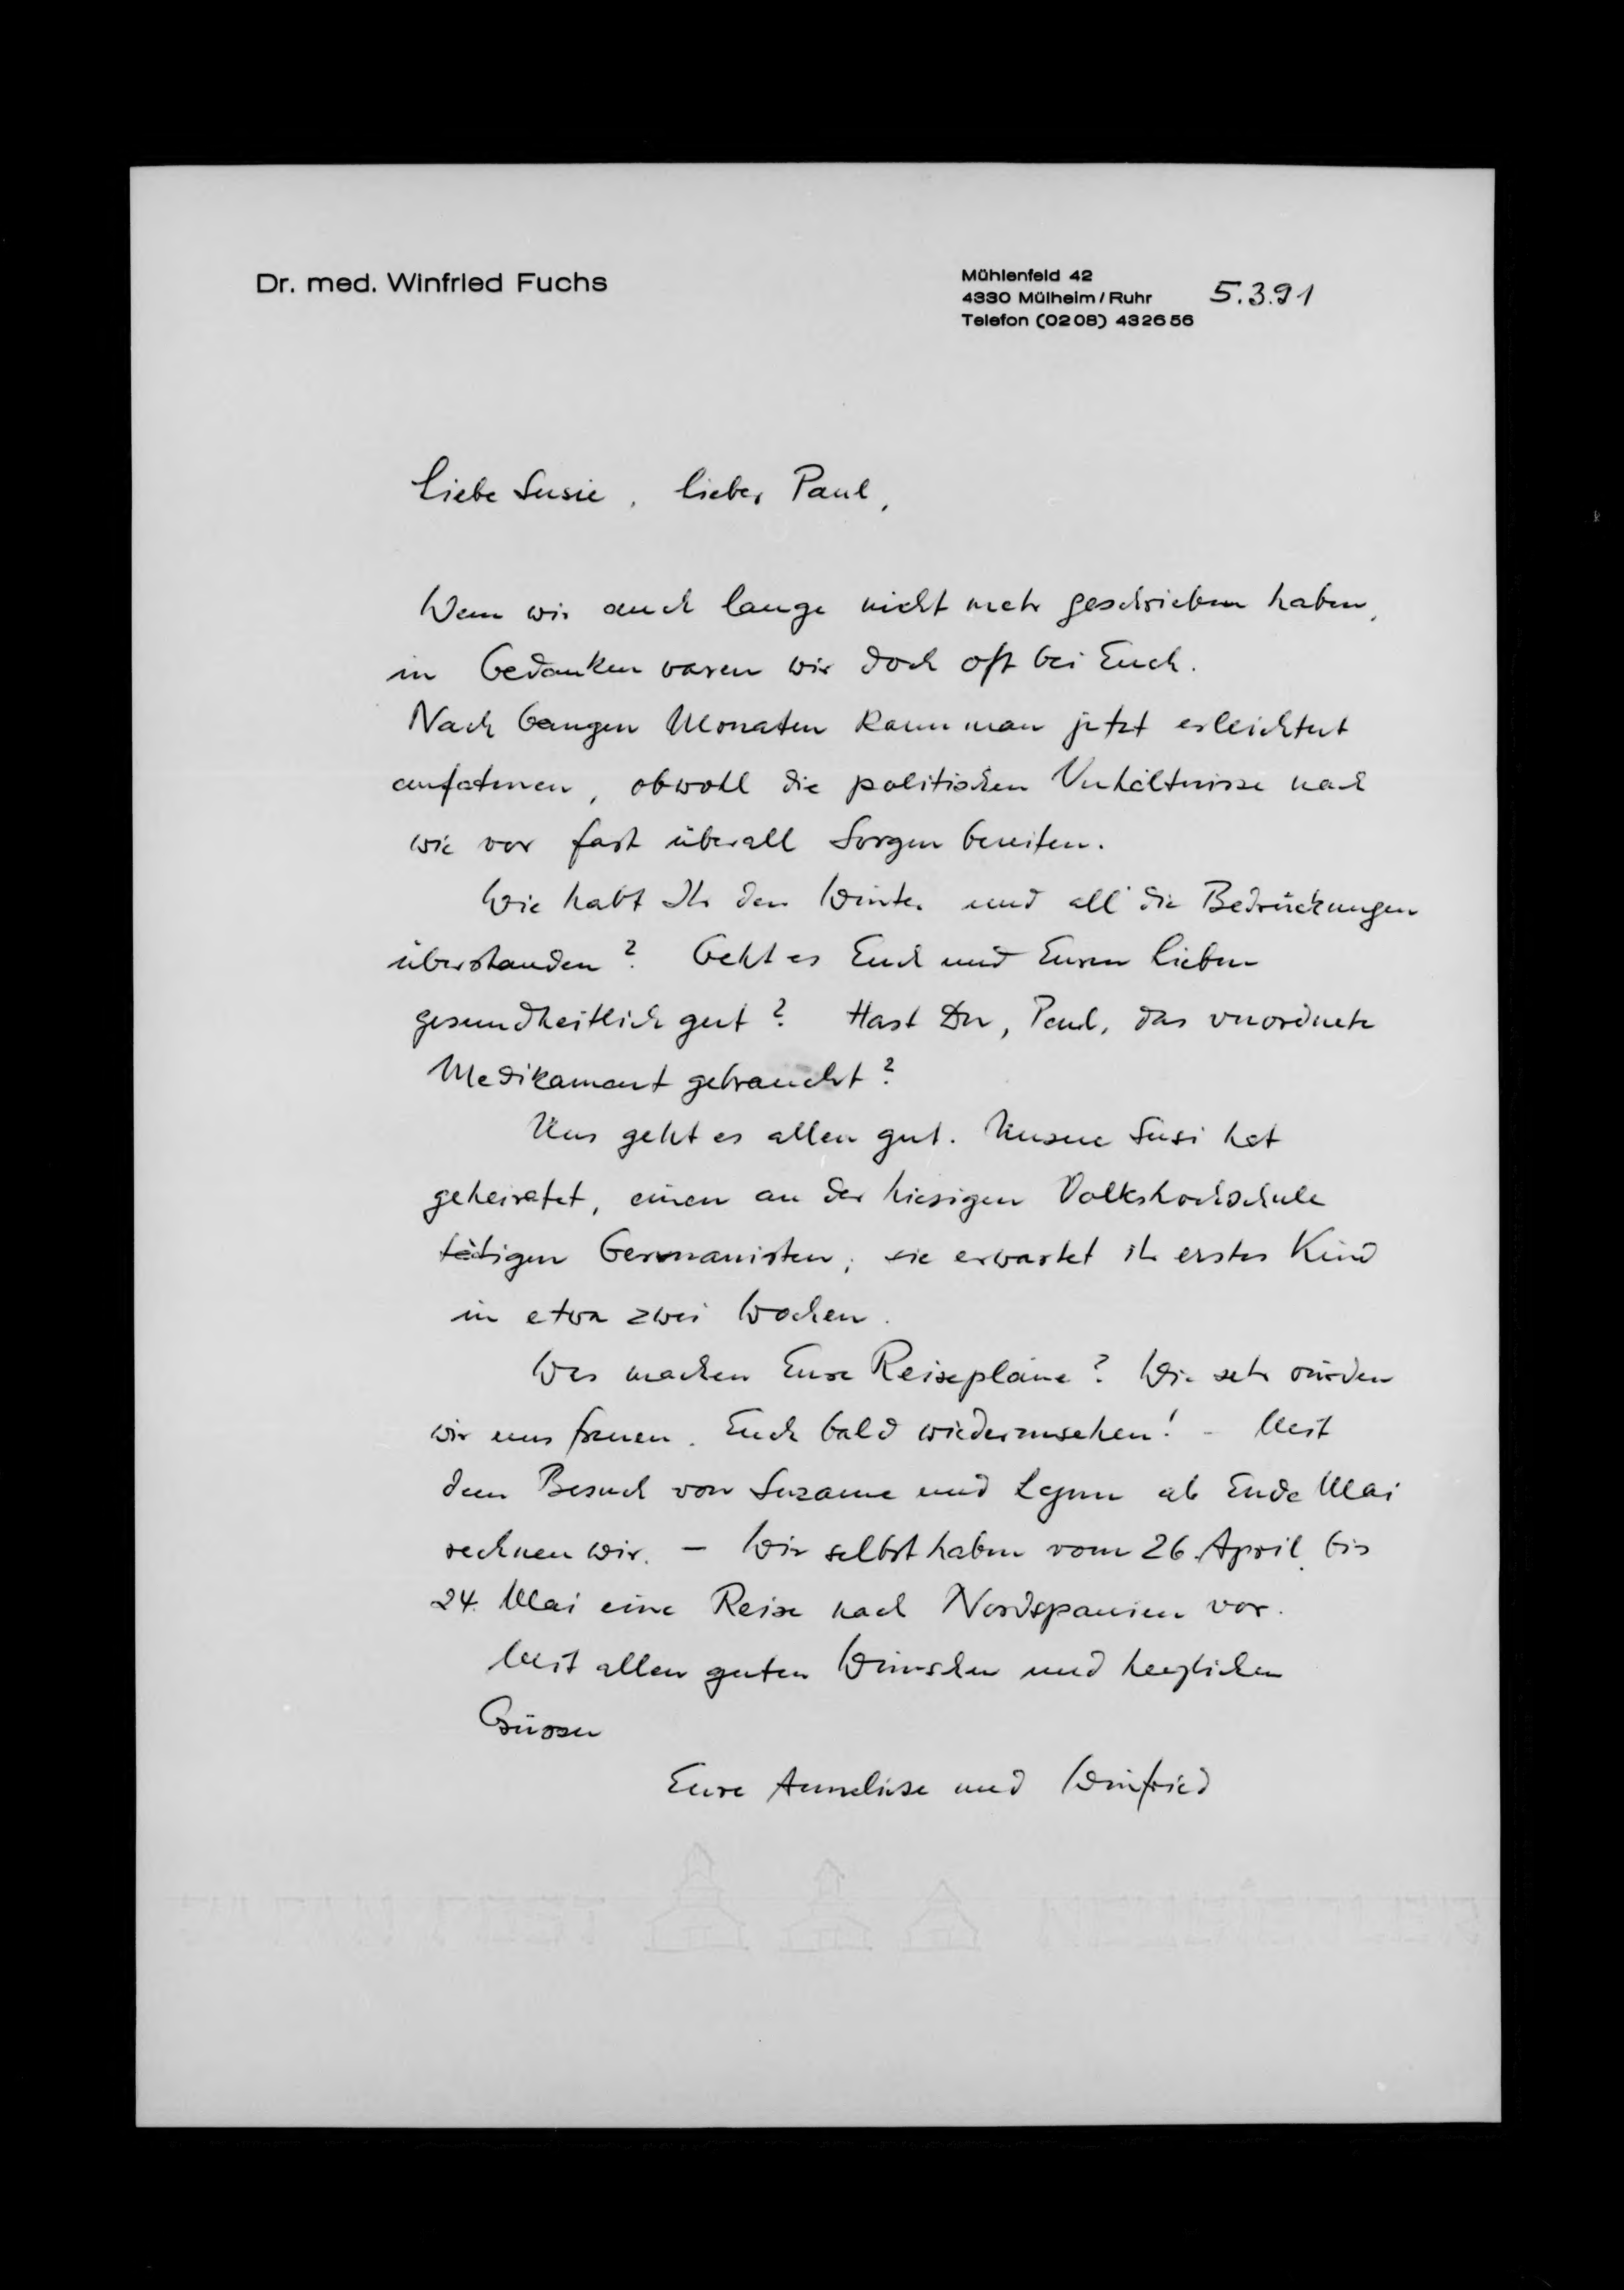 Dr. med. Winfried Fuchs
Mühlenfeld 42
4330 Mülheim/Ruhr
Telefon (0208) 432656
5.3.91
Liebe Susie, lieber Paul,
Wenn wir auch lange nicht mehr geschrieben haben,
in Gedanken waren wir doch oft bei Euch.
Nach bangen Monaten kann man jetzt erleichtert
aufatmen, obwohl die politischen Verhältnisse nach
wie vor fast überall Sorgen bereiten.
Wie habt Ihr den Winter und all die Bedrückungen
überstanden? Geht es Euch und Euren Lieben
gesundheitlich gut? Hast Du, Paul, das verordnete
Medikament gebraucht?
Uns geht es allen gut. Unsere Susi hat
geheiratet, einen an der hiesigen Volkshochschule
tätigen Germanisten; sie erwartet ihr erstes Kind
in etwa zwei Wochen.
Was machen Eure Reisepläne? Wie sehr würden
wir uns freuen, Euch bald wiederzusehen! - Mit
dem Besuch von Suzanne und ab Ende Mai
rechnen wir. - Wir selbst haben vom 26. April bis
24. Mai eine Reise nach Nordspanien vor.
Mit allen guten Wünschen und herzlichen
Grüssen
Eure Anneliese und Winfried